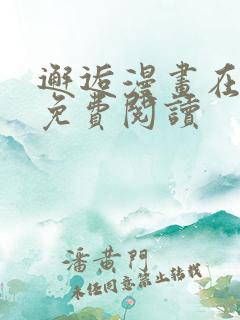 邂逅漫畫在
免費閱讀
潘黄門
未经同意禁止转载